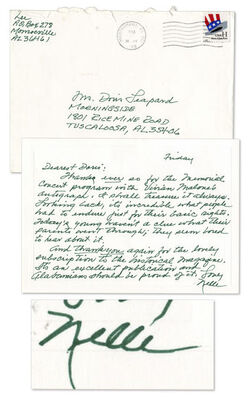 Lee
P.O. Box 278
Monroeville
AL 36461
USA
H
Ms. Doris Leapard
MORNINGSIDE
1801 RICE MINE ROAD
TUSCALOOSA, AL 35406
Friday
Dearest Doris:
Thanks ever so for the Memorial
Concert program with Vivian Malone's
autograph. I shall treasure it always.
Looking back, it's incredible what people
had to endure just for their basic rights.
Today's young haven't a clue what their
parents went through; they seem bored
to hear about it.
And thank you again for the lovely
subscription to the historical magazine.
It's an excellent publication and
Alabamians should be proud of it. Love,
Nelle
Nelle